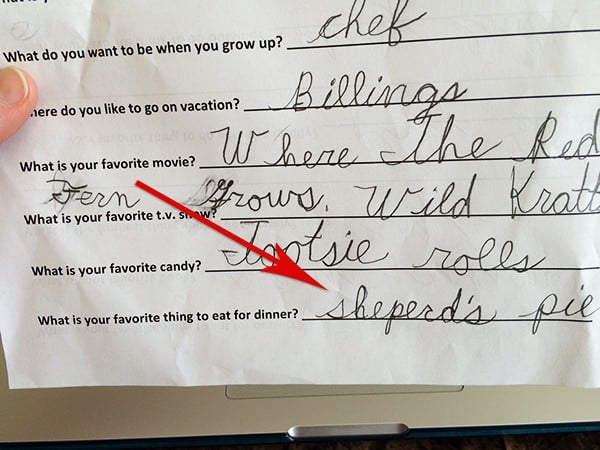 What do you want to be when you grow up? chef
here do you like to go on vacation? Billings
What is your favorite movie? Where The Red
Fern Grows.
What is your favorite t.v. show? Wild Kratt
What is your favorite candy? Tootsie rolls
What is your favorite thing to eat for dinner? sheperd's pie